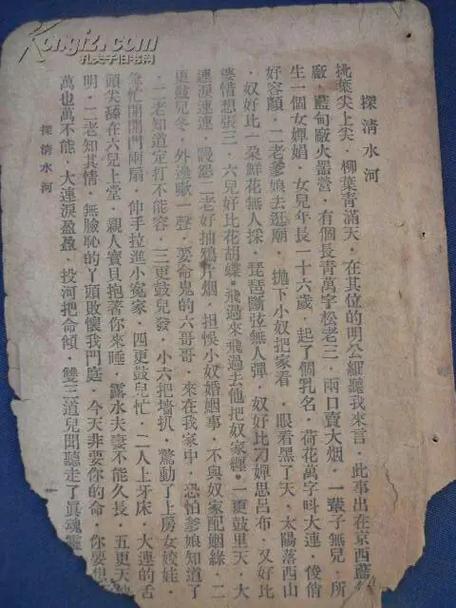 Kongfz.com
孔夫子旧书网
探清水河
桃葉尖上尖．柳葉青滿天．在其位的明公細聽我來言．此事出在京西藍
廠．藍甸廠火器營．有個長青萬字松老三．兩口賣大烟．一輩子無兒．所
生一個女嬋娟．女兒年長一十六歲．起了個乳名．荷花萬字叫大連．俊俏
好容顏．二老爹娘去逛廟．拋下小奴把家看．眼看黑了天．太陽落西山
．奴好比一朵鮮花無人採．琵琶斷弦無人彈．奴好比刁嬋思呂布．又好比
婆情想張三．六兒好比花胡蝶．飛過來飛過去他把奴家纏．一更鼓里天．大
連淚連連．瞞怨二老好抽鴉片烟．担悞小奴婚姻事．不與奴家配姻緣．二
更鼓兒冬．外邊嗽一聲．要命鬼的六哥哥．來在我家中．恐怕爹娘知道了
．二老知道定打不能容．三更鼓兒發．小六把墻扒．驚動了上房女姣娃．
急忙開開門兩扇．伸手拉進小冤家．四更鼓兒忙．二人上牙床．大連的舌
頭尖舔在六兒上堂．親人寶貝抱著你來睡．露水夫妻不能久長．五更天
明．二老知其情．無臉恥的丫頭敗懷我門庭．今天非要你的命．你要想
萬也萬不能．大連淚盈盈．投河把命傾．雙三道兒聞聽走了真魂靈
探清水河